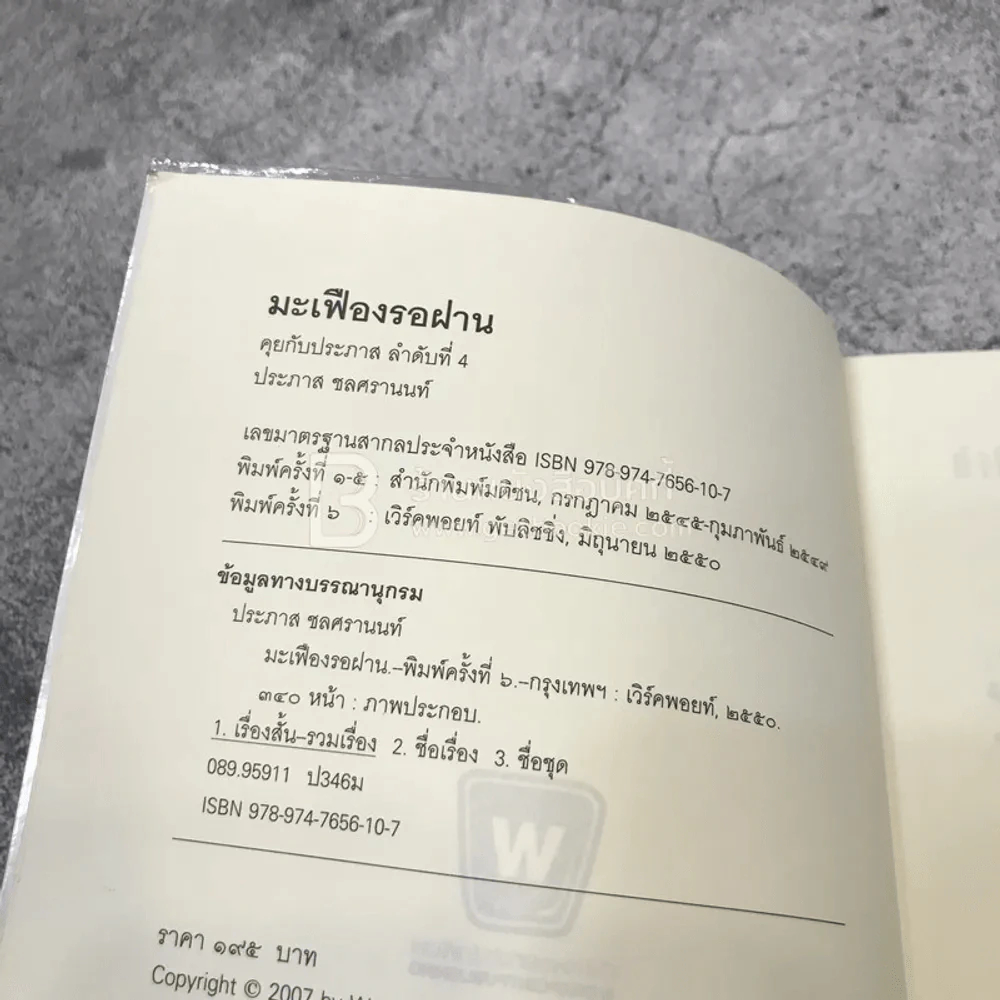 มะเฟืองรอฝาน
คุยกับประภาส ลำดับที่ 4
ประภาส ชลศรานนท์
เลขมาตรฐานสากลประจำหนังสือ ISBN 978-974-7656-10-7
พิมพ์ครั้งที่ ๑-๕ : สำนักพิมพ์มติชน, กรกฎาคม ๒๕๔๕-กุมภาพันธ์ ๒๕๔๙
พิมพ์ครั้งที่ ๖ : เวิร์คพอยท์ พับลิชชิ่ง, มิถุนายน ๒๕๕๐
ข้อมูลทางบรรณานุกรม
ประภาส ชลศรานนท์
มะเฟืองรอฝาน.–พิมพ์ครั้งที่ ๖.–กรุงเทพฯ : เวิร์คพอยท์, ๒๕๕๐.
๓๔๐ หน้า : ภาพประกอบ.
1. เรื่องสั้น–รวมเรื่อง 2. ชื่อเรื่อง 3. ชื่อชุด
089.95911 ป346ม
ISBN 978-974-7656-10-7
W
ราคา ๑๙๕ บาท
Copyright © 2007 by